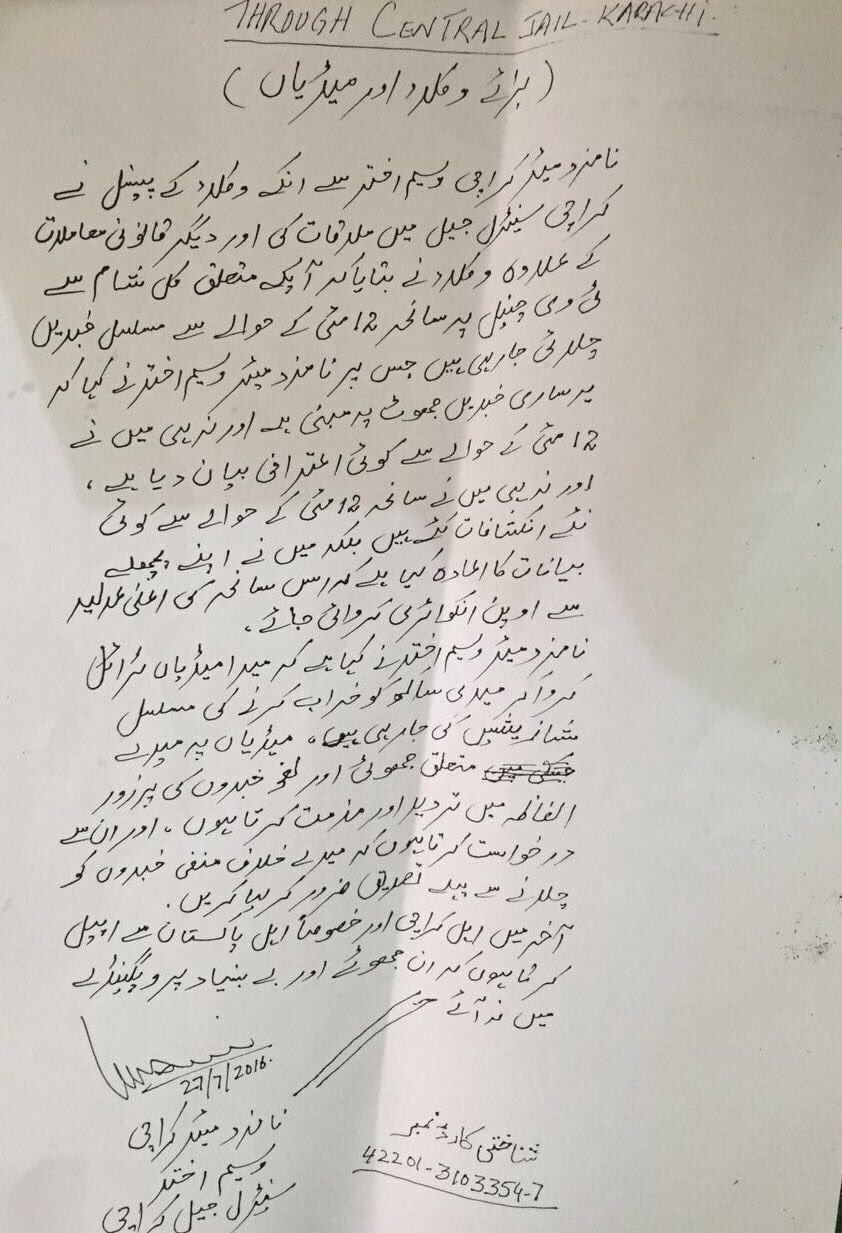 THROUGH CENTRAL JAIL - KARACHI.
(برائے وکلاء اور میڈیاں)
نامزد میئر کراچی وسیم اختر سے انکے وکلاء کے پینل نے
کراچی سینٹرل جیل میں ملاقات کی اور دیگر قانونی معاملات
کے علاوہ وکلاء نے بتایا کہ آپکے متعلق کل شام سے
ٹی وی چینل پر سانحہ 12 مئی کے حوالے سے مسلسل خبریں
چلائی جارہی ہیں جس پر نامزد میئر وسیم اختر نے کہا کہ
یہ ساری خبریں جھوٹ پہ مبنی ہے اور نہ ہی میں نے
12 مئی کے حوالے سے کوئی اعترافی بیان دیا ہے،
اور نہ ہی میں نے سانحہ 12 مئی کے حوالے سے کوئی
نئے انکشافات کئے ہیں بلکہ میں نے اپنے پچھلے
بیانات کا اعادہ کیا ہے کہ اس سانحہ کی اعلٰی عدلیہ
سے اوپن انکوائری کروائی جائے،
نامزد میئر وسیم اختر نے کہا ہے کہ میرا میڈیاں ٹرائل
کرواکر میری ساکھ کو خراب کرنے کی مسلسل
شازیشیں کی جارہی ہیں، میڈیاں پہ میرے
متعلق جھوٹی اور لغو خبروں کی پرزور
الفاظہ میں تردید اور مذمت کرتا ہوں، اور ان سے
درخواست کرتا ہوں کہ میرے خلاف منفی خبروں کو
چلانے سے پہلے تصدیق ضرور کر لیا کریں.
آخر میں اہل کراچی اور خصوصاً اہل پاکستان سے اپیل
کرتا ہوں کہ ان جھوٹے اور بے بنیاد پروپگینڈے
میں نہ آئے
27/7/2016.
نامزد میئر کراچی
وسیم اختر
سینٹرل جیل کراچی
شناختی کارڈ نمبر
42201-3103354-7